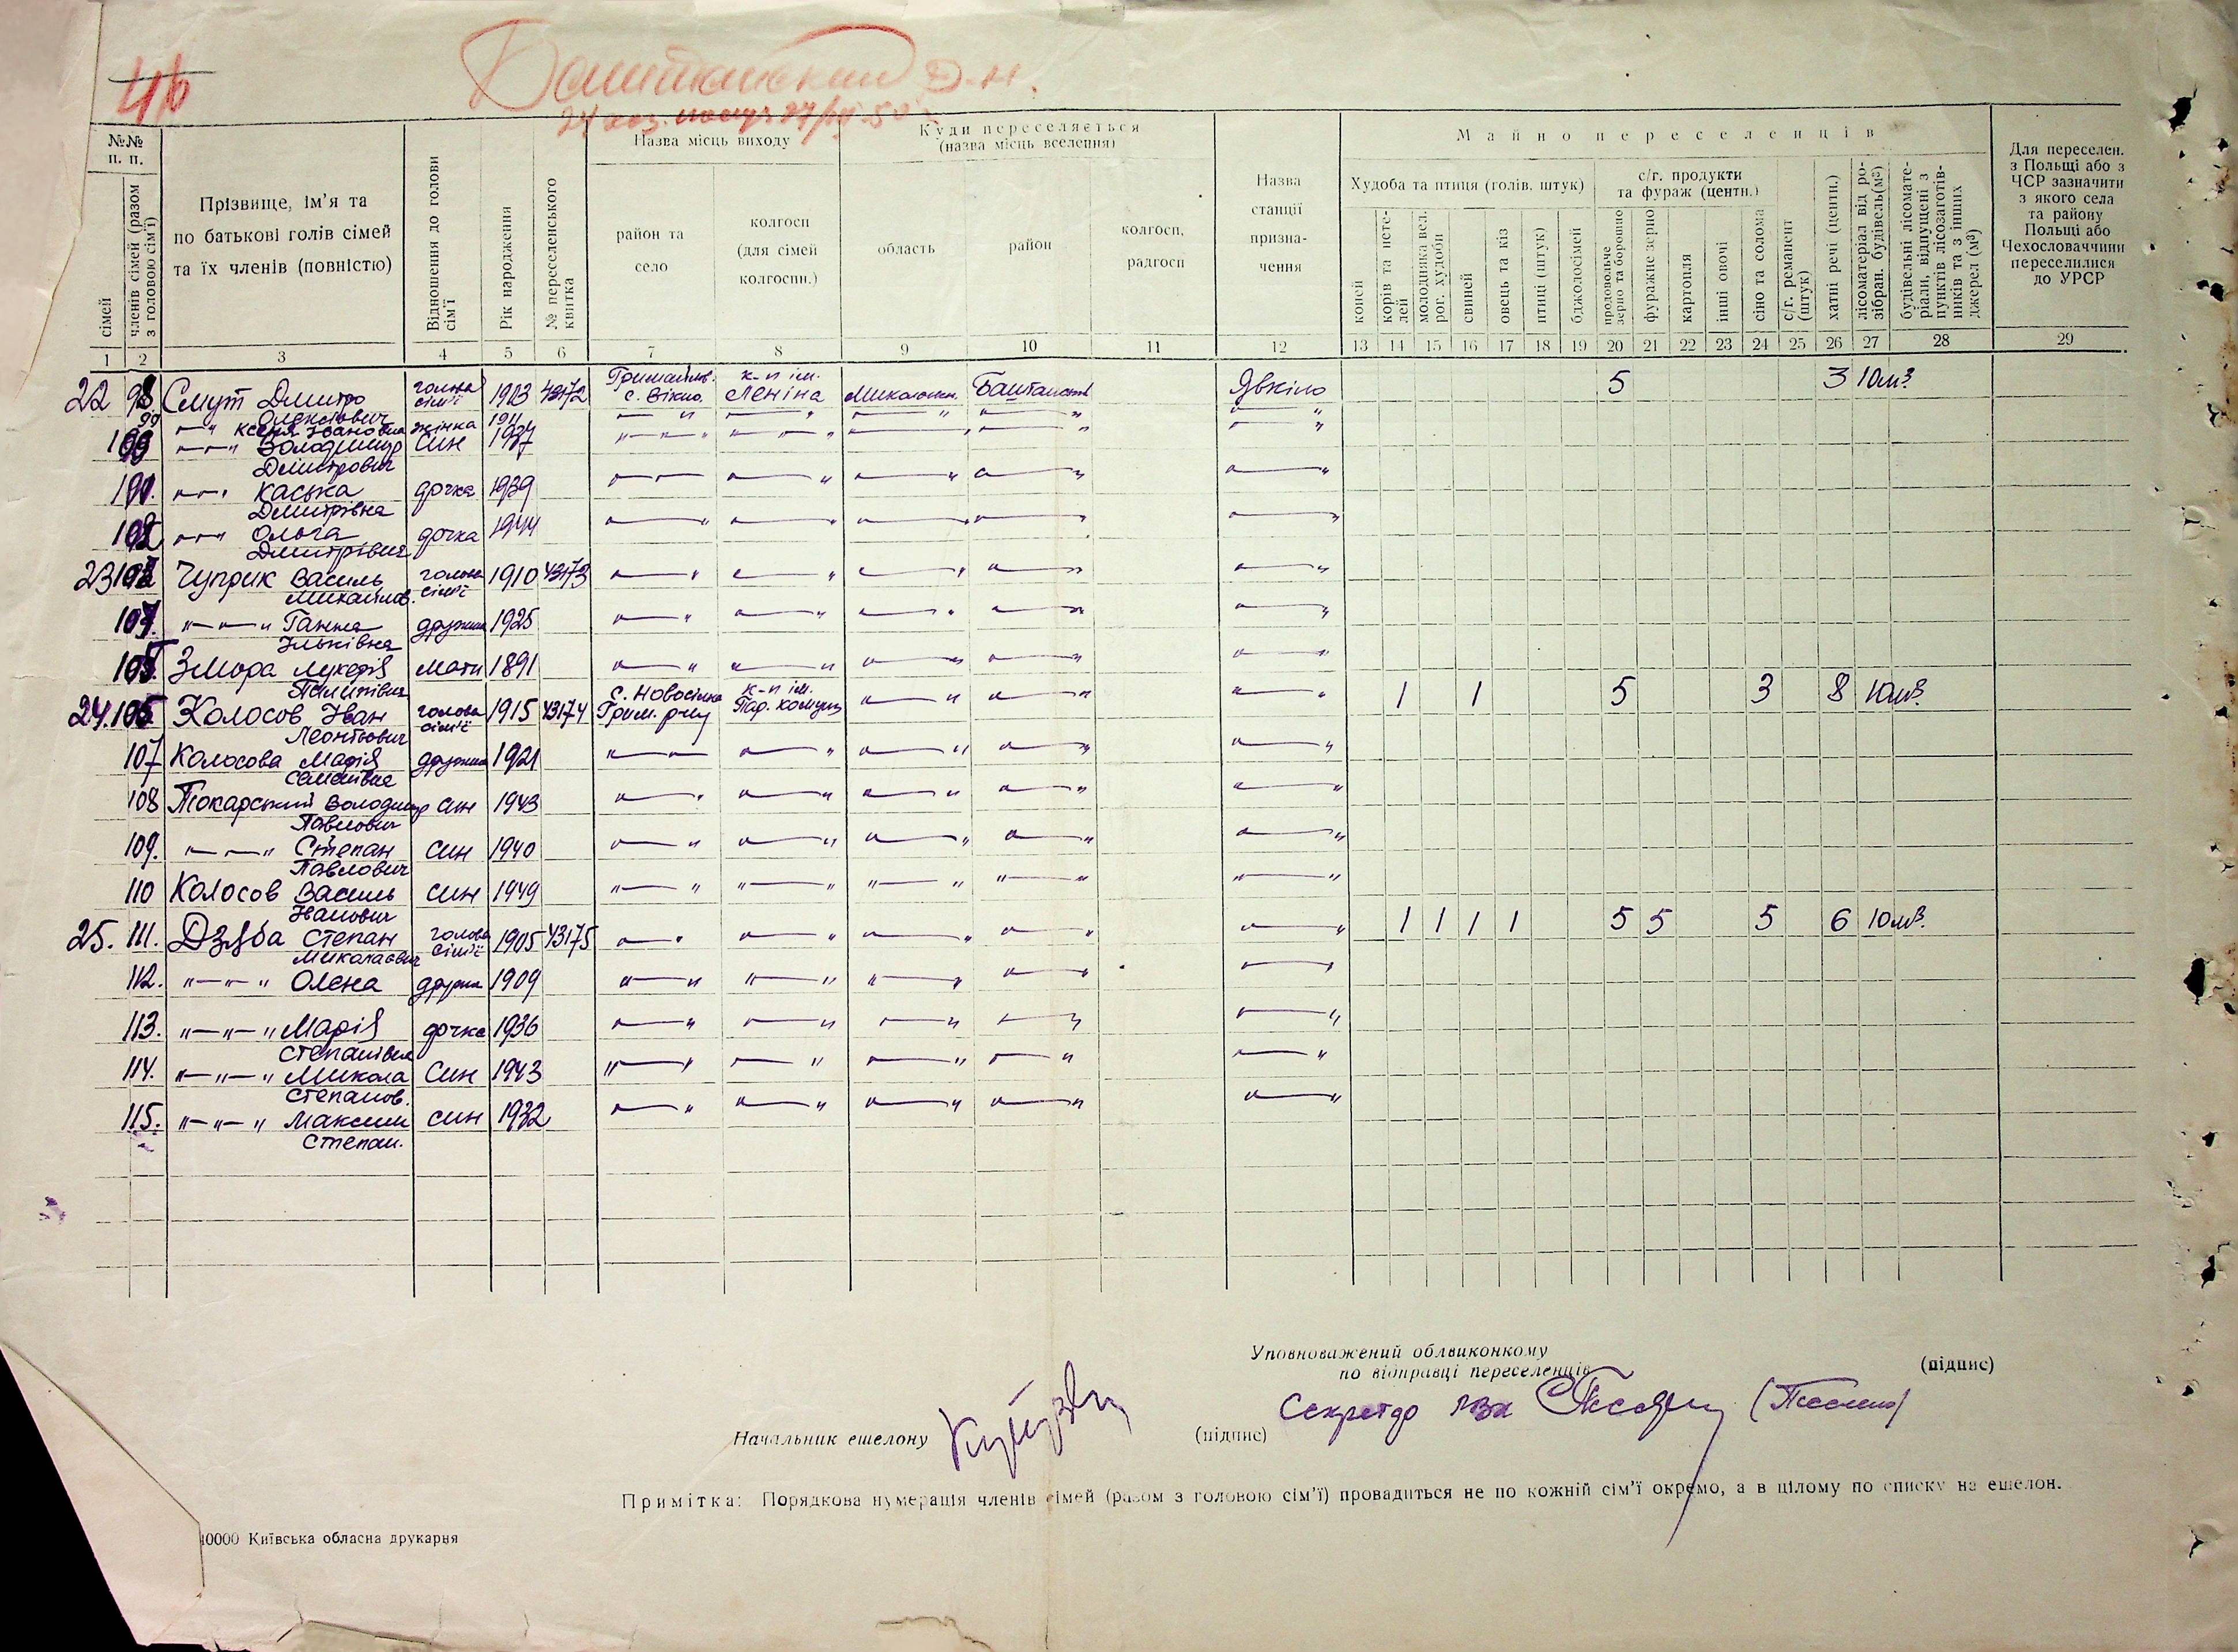 46
Баштанський р-н.
№№ п. п.
сімей
членів сімей (разом з головою сім'ї)
Прізвище, ім'я та по батькові голів сімей та їх членів (повністю)
Відношення до голови сім'ї
Рік народження
№ переселенського квитка
Назва місць виходу
район та село
колгосп (для сімей колгоспн.)
Куди переселяється
(назва місць вселення)
область
район
колгосп, радгосп
Назва станції призна- чення
Майно переселенців
Худоба та птиця (голів. штук)
коней
корів та нете- лей
молодняка вел. рог. худоби
свиней
овець та кіз
птиці (штук)
бджолосімей
с/г. продукти та фураж (центн.)
продовольче зерно та борошно
фуражне зерно
картопля
інші овочі
сіно та солома
с/г. реманент (штук)
хатні речі (центн.)
лісоматеріал від ро- зібран. будівель(м³)
будівельні лісомате- ріали, відпущені з пунктів лісозаготів- ників та з інших джерел (м³)
Для переселен. з Польщі або з ЧСР зазначити з якого села та району Польщі або Чехословаччини переселилися до УРСР
1 2 3 4 5 6 7 8 9 10 11 12 13 14 15 16 17 18 19 20 21 22 23 24 25 26 27 28 29
22 98 Смут Дмитро голова сім'ї 1903 43172 Гримайлів. с. Вікно. к-п ім. Леніна Миколаївськ. Баштанськ Явкіно 5 3 10 м³
Олексієвич
99 —"— Ксеня Івановна жінка 1911 —"— —"— —"— —"— —"—
100 —"— Володимир син 1937 —"— —"— —"— —"— —"—
Дмитрович
101. —"— Каська дочка 1939 —"— —"— —"— —"— —"—
Дмитрівна
102 —"— Ольга дочка 1944 —"— —"— —"— —"— —"—
Дмитрівна
23 103 Чуприк Василь голова сім'ї 1910 43173 —"— —"— —"— —"— —"—
Михайлов.
104. —"— Ганна дружина 1925 —"— —"— —"— —"— —"—
Ільківна
105. Змора Лукерія мати 1891 —"— —"— —"— —"— —"—
Пилипівна
24. 106 Колосов Іван голова сім'ї 1915 43174 с. Новосілка Грим. р-ну к-п ім. Пар. комуни —"— —"— —"— 1 1 5 3 8 10 м³.
Леонтьович
107 Колосова Марія дружина 1921 —"— —"— —"— —"— —"—
Семенівна
108 Токарський Володимир син 1943 —"— —"— —"— —"— —"—
Павлович
109. —"— Степан син 1940 —"— —"— —"— —"— —"—
Павлович
110 Колосов Василь син 1949 —"— —"— —"— —"— —"—
Іванович
25. 111. Дзюба Степан голова сім'ї 1905 43175 —"— —"— —"— —"— —"— 1 1 1 1 5 5 5 6 10 м³.
Миколаович
112. —"— Олена дружина 1909 —"— —"— —"— —"— —"—
113. —"— Марія дочка 1936 —"— —"— —"— —"— —"—
Степанівна
114. —"— Микола син 1943 —"— —"— —"— —"— —"—
Степанов.
115. —"— Максим син 1932 —"— —"— —"— —"— —"—
Степан.
Уповноважений облвиконкому
по відправці переселенців
(підпис)
Начальник ешелону
(підпис)
Примітка: Порядкова нумерація членів сімей (разом з головою сім'ї) провадиться не по кожній сім'ї окремо, а в цілому по списку на ешелон.
10000 Київська обласна друкарня